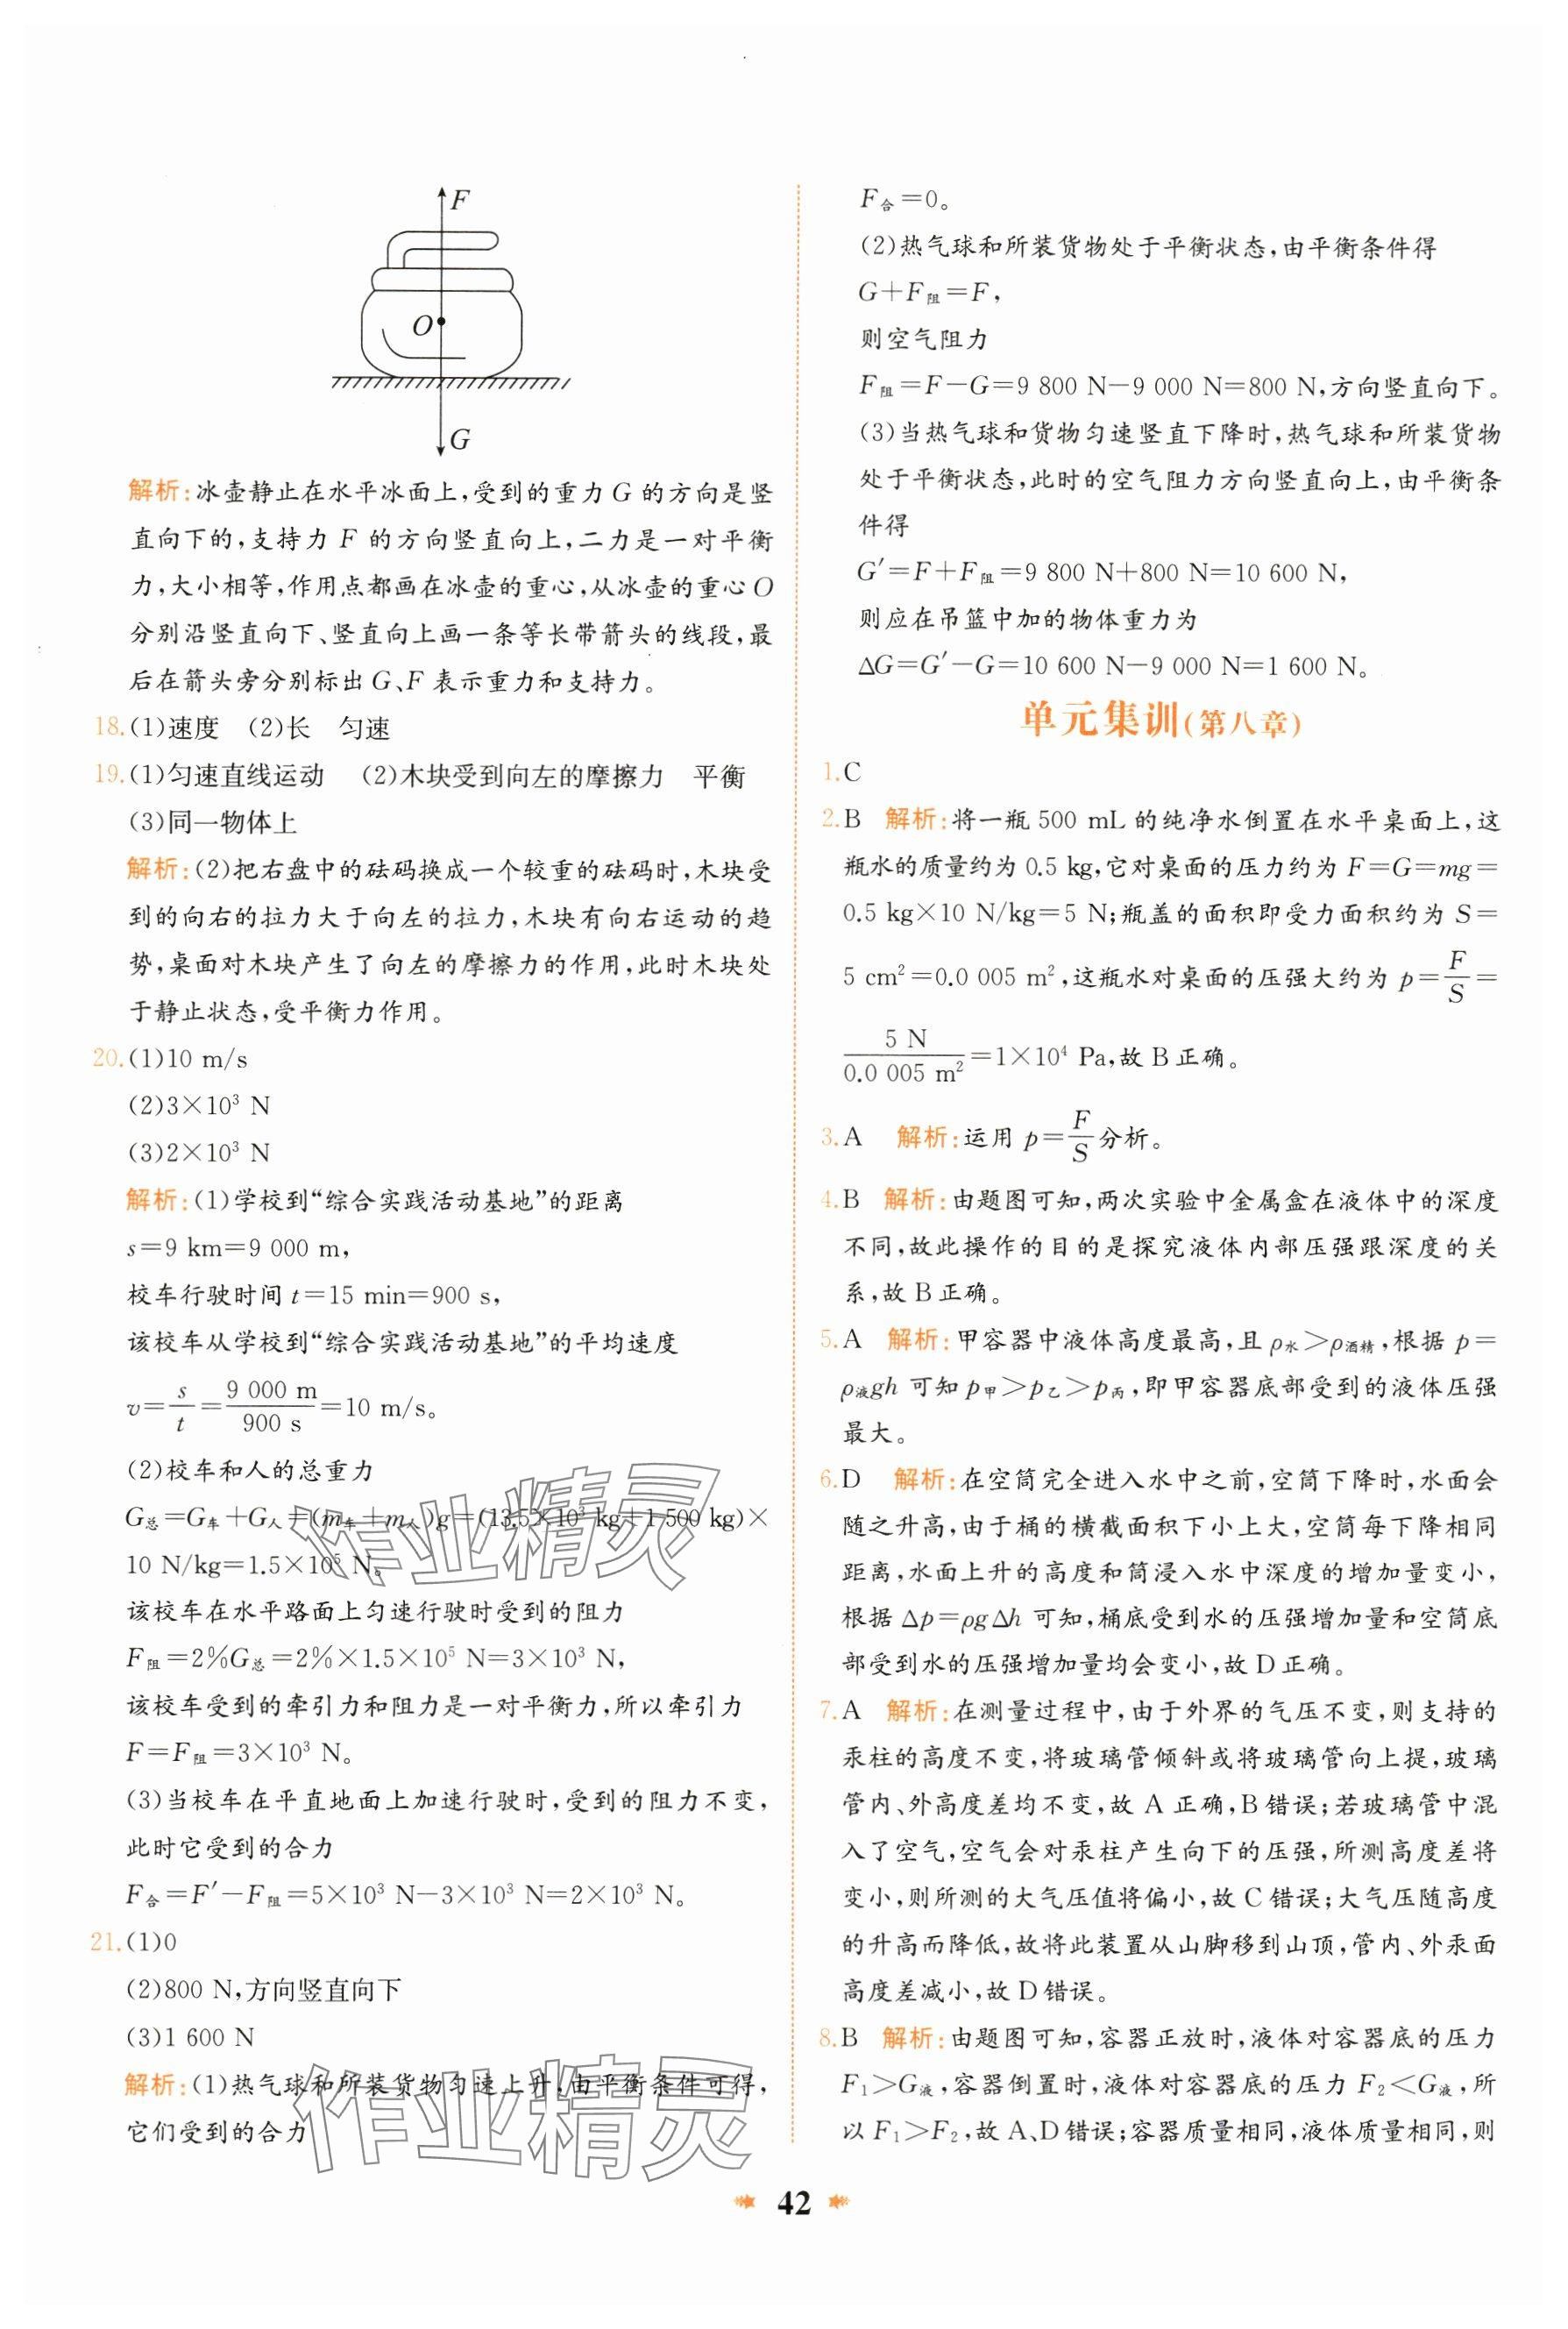 F
O
G
解析:冰壶静止在水平冰面上,受到的重力 G 的方向是竖
直向下的,支持力 F 的方向竖直向上,二力是一对平衡
力,大小相等,作用点都画在冰壶的重心,从冰壶的重心 O
分别沿竖直向下、竖直向上画一条等长带箭头的线段,最
后在箭头旁分别标出 G、F 表示重力和支持力。
18.(1)速度 (2)长 匀速
19.(1)匀速直线运动 (2)木块受到向左的摩擦力 平衡
(3)同一物体上
解析:(2)把右盘中的砝码换成一个较重的砝码时,木块受
到的向右的拉力大于向左的拉力,木块有向右运动的趋
势,桌面对木块产生了向左的摩擦力的作用,此时木块处
于静止状态,受平衡力作用。
20.(1)10 m/s
(2)3×10³ N
(3)2×10³ N
解析:(1)学校到“综合实践活动基地”的距离
s=9 km=9 000 m,
校车行驶时间 t=15 min=900 s,
该校车从学校到“综合实践活动基地”的平均速度
v=s/t=9 000 m/900 s=10 m/s。
(2)校车和人的总重力
G总=G车+G人=(m车+m人)g=(13.5×10³ kg+1 500 kg)×
10 N/kg=1.5×10⁵ N。
该校车在水平路面上匀速行驶时受到的阻力
F阻=2%G总=2%×1.5×10⁵ N=3×10³ N,
该校车受到的牵引力和阻力是一对平衡力,所以牵引力
F=F阻=3×10³ N。
(3)当校车在平直地面上加速行驶时,受到的阻力不变,
此时它受到的合力
F合=F′-F阻=5×10³ N-3×10³ N=2×10³ N。
21.(1)0
(2)800 N,方向竖直向下
(3)1 600 N
解析:(1)热气球和所装货物匀速上升,由平衡条件可得,
它们受到的合力
F合=0。
(2)热气球和所装货物处于平衡状态,由平衡条件得
G+F阻=F,
则空气阻力
F阻=F-G=9 800 N-9 000 N=800 N,方向竖直向下。
(3)当热气球和货物匀速竖直下降时,热气球和所装货物
处于平衡状态,此时的空气阻力方向竖直向上,由平衡条
件得
G′=F+F阻=9 800 N+800 N=10 600 N,
则应在吊篮中加的物体重力为
ΔG=G′-G=10 600 N-9 000 N=1 600 N。
单元集训(第八章)
1.C
2.B 解析:将一瓶 500 mL 的纯净水倒置在水平桌面上,这
瓶水的质量约为 0.5 kg,它对桌面的压力约为 F=G=mg=
0.5 kg×10 N/kg=5 N;瓶盖的面积即受力面积约为 S=
5 cm²=0.0 005 m²,这瓶水对桌面的压强大约为 p=F/S=
5 N/0.0 005 m²=1×10⁴ Pa,故 B 正确。
3.A 解析:运用 p=F/S分析。
4.B 解析:由题图可知,两次实验中金属盒在液体中的深度
不同,故此操作的目的是探究液体内部压强跟深度的关
系,故 B 正确。
5.A 解析:甲容器中液体高度最高,且 ρ水>ρ酒精,根据 p=
ρ液gh 可知 p甲>p乙>p丙,即甲容器底部受到的液体压强
最大。
6.D 解析:在空筒完全进入水中之前,空筒下降时,水面会
随之升高,由于桶的横截面积下小上大,空筒每下降相同
距离,水面上升的高度和筒浸入水中深度的增加量变小,
根据 Δp=ρgΔh 可知,桶底受到水的压强增加量和空筒底
部受到水的压强增加量均会变小,故 D 正确。
7.A 解析:在测量过程中,由于外界的气压不变,则支持的
汞柱的高度不变,将玻璃管倾斜或将玻璃管向上提,玻璃
管内、外高度差均不变,故 A 正确,B 错误;若玻璃管中混
入了空气,空气会对汞柱产生向下的压强,所测高度差将
变小,则所测的大气压值将偏小,故 C 错误;大气压随高度
的升高而降低,故将此装置从山脚移到山顶,管内、外汞面
高度差减小,故 D 错误。
8.B 解析:由题图可知,容器正放时,液体对容器底的压力
F₁>G液,容器倒置时,液体对容器底的压力 F₂<G液,所
以 F₁>F₂,故 A、D 错误;容器质量相同,液体质量相同,则
作业精灵
作业精灵
42